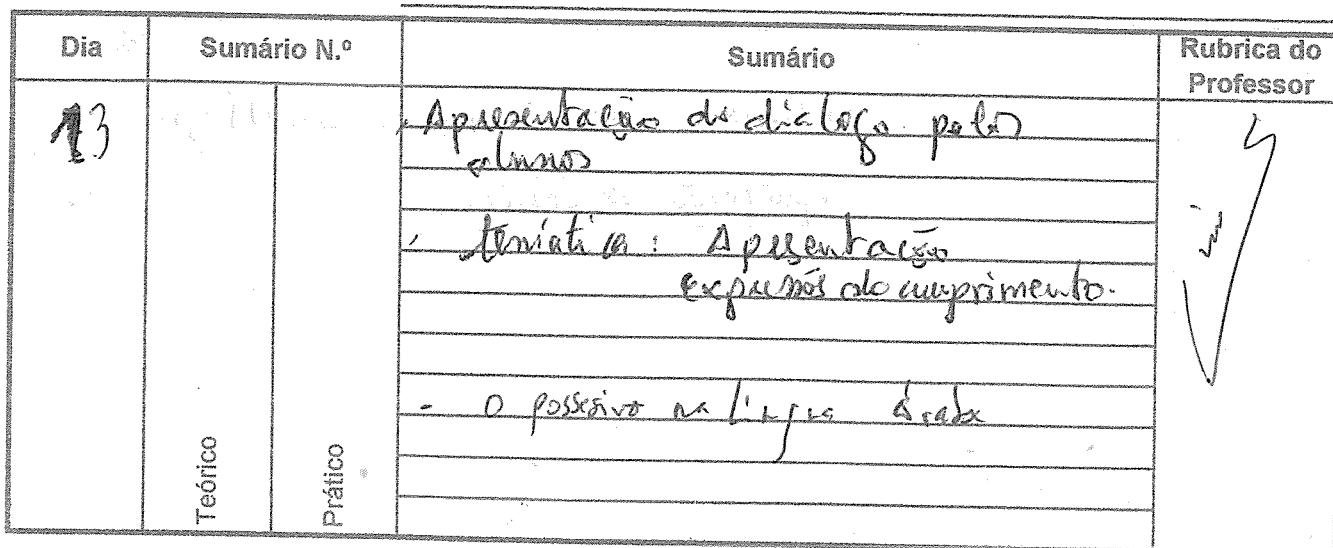 Dia Sumário N.º Sumário Rubrica do Professor
13
Teórico
Prático
. Apresentação do dialogo pelos
alunos
. temática : Apresentação
expressões do cumprimento.
- O possesivo na língua árabe